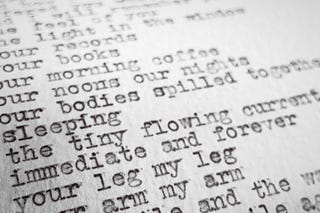 feel of
the light the window
our records
your books
our morning coffee
our noons our nights
our bodies spilled together
sleeping
the tiny flowing current
immediate and forever
your leg my leg
arm my arm
and the